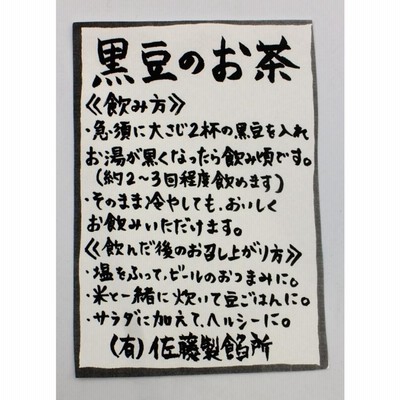 黒豆のお茶
≪飲み方≫
・急須に大さじ2杯の黒豆を入れ
お湯が黒くなったら飲み頃です。
(約2～3回程度飲めます)
・そのまま冷やしても、おいしく
お飲みいただけます。
≪飲んだ後のお召し上がり方≫
・塩をふって、ビールのおつまみに。
・米と一緒に炊いて豆ごはんに。
・サラダに加えて、ヘルシーに。
(有)佐藤製餡所